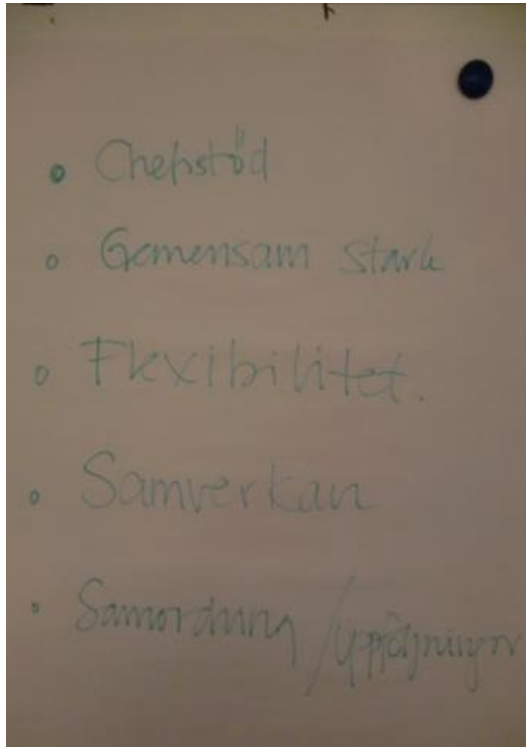 • Chefstöd
• Gemensam stark
• Flexibilitet.
• Samverkan
• Samordning /uppföljningar